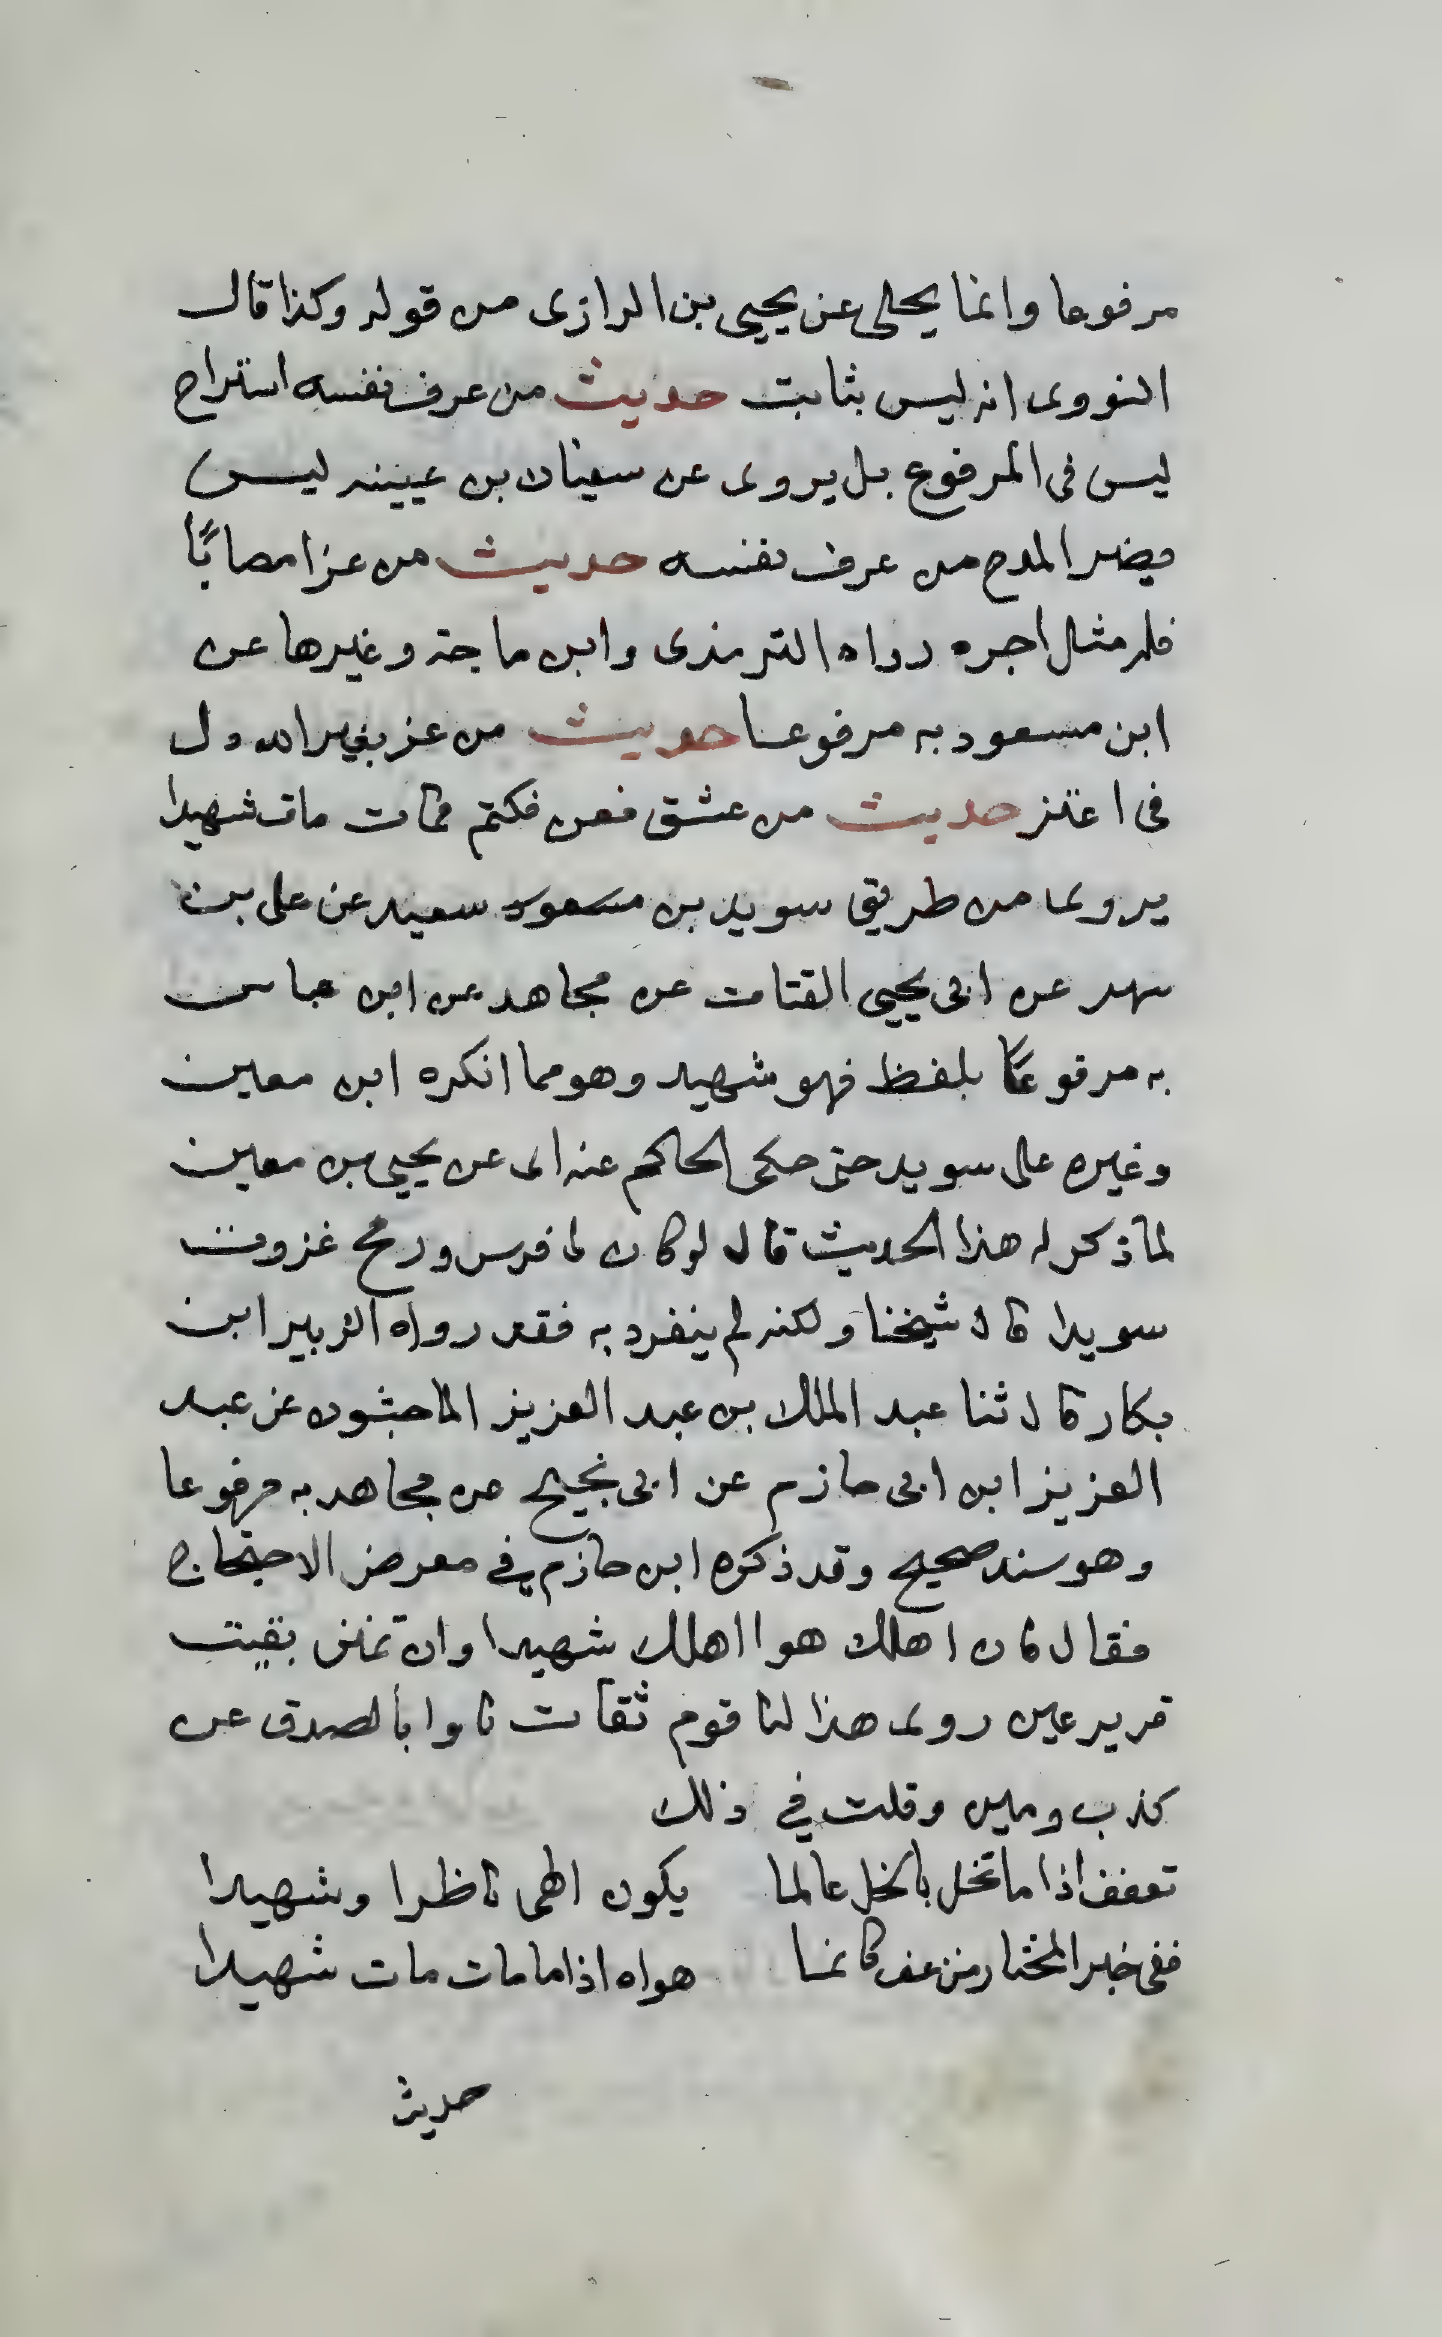 مرفوعا وانما يحكى عن يحيى بن الرازى من قوله وكذا قال
النووى انه ليس بثابت حديث من عرف نفسه استراح
ليس فى المرفوع بل يروى عن سفيان بن عيينه ليس
يضر المدح من عرف نفسه حديث من عزا مصابًا
فله مثل اجره رواه الترمذى وابن ماجة وغيرها عن
ابن مسعود به مرفوعا حديث من عز بغير الله ذل
فى اعتز حديث من عشق فعف فكتم فمات مات شهيدا
يروى من طريق سويد بن مسعود سعيد عن على بن
سهر عن ابى يحيى القتات عن مجاهد عن ابن عباس
به مرفوعا بلفظ فهو شهيد وهو مما انكره ابن معين
وغيره على سويد حتى حكى الحاكم عنه اى عن يحيى بن معين
لما ذكر له هذا الحديث قال لو كان لى فرس ورمح غزوت
سويدا قال شيخنا ولكنه لم ينفرد به فقد رواه الزبير ابن
بكار قال ثنا عبد الملك بن عبد العزيز الماجشون عن عبد
العزيز ابن ابى حازم عن ابى نجيح عن مجاهد به مرفوعا
وهو سند صحيح وقد ذكره ابن حازم في معرض الاحتجاج
فقال فان اهلك هوا اهلك شهيدا وان تمنن بقيت
قرير عين روى هذا لنا قوم ثقات نا وا بالصدق عن
كذب ومين وقلت في ذلك
تعفف اذا ما تخل بالخل عالما يكون الهى ناظرا وشهيدا
ففى خبر المختار من عف كاتما هواه اذا ما مات مات شهيدا
حديث